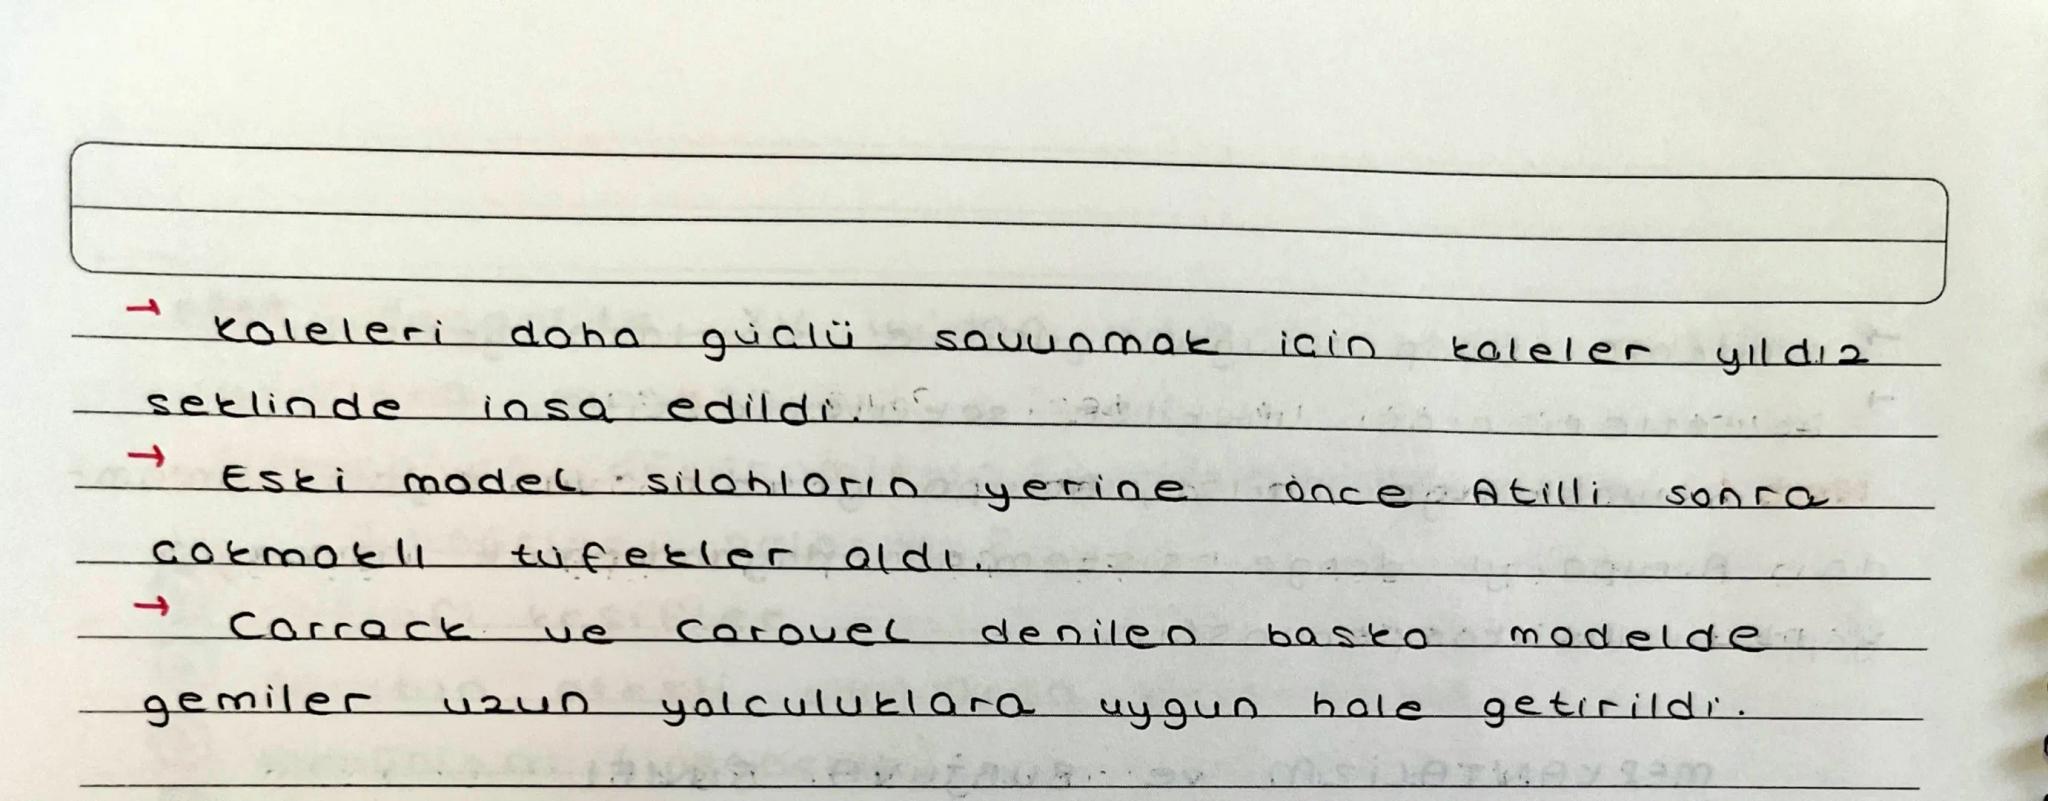 → Kaleleri daha güçlü savunmak için kaleler yıldız
şeklinde inşa edildi.
→ Eski model silahların yerine önce Atilli sonra
çakmaklı tüfekler aldı.
→ Carrack ve Caravel denilen başka modelde
gemiler uzun yolculuklara uygun hale getirildi.